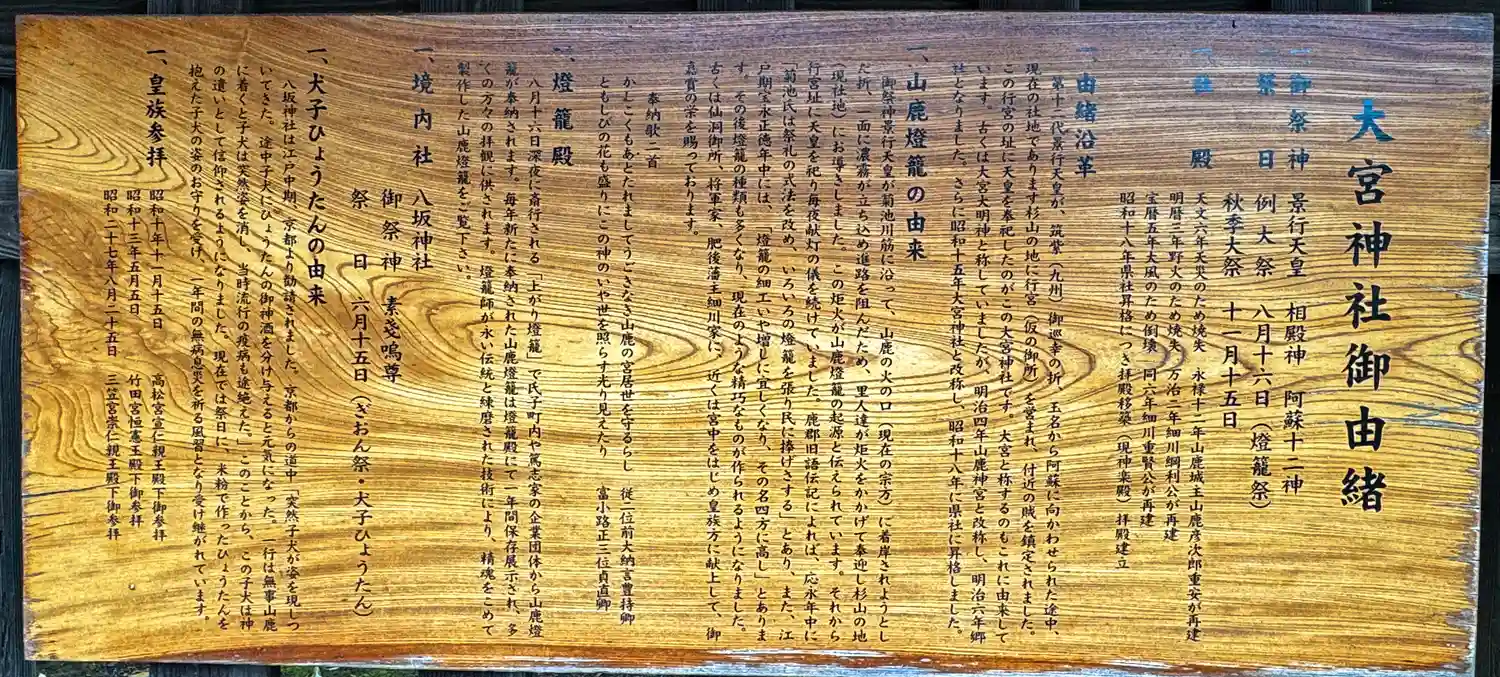 大宮神社御由緒
一、御祭神 景行天皇 相殿神 阿蘇十二神
一、祭日 例大祭 八月十六日（燈籠祭）
秋季大祭 十一月十五日
一、社殿 天文六年天災のため焼失 永禄十一年山鹿城主山鹿彦次郎重安が再建
明暦三年野火のため焼失 万治二年細川綱利公が再建
宝暦五年大風のため倒壊 同六年細川重賢公が再建
昭和十八年県社昇格につき拝殿移築（現神楽殿）拝殿建立
一、由緒沿革
第十二代景行天皇が、筑紫（九州）御巡幸の折、玉名から阿蘇に向かわせられた途中、
現在の社地であります杉山の地に行宮（仮の御所）を営まれ、付近の賊を鎮定されました。
この行宮の址に天皇を奉祀したのがこの大宮神社です。大宮と称するのもこれに由来して
います。古くは大宮大明神と称していましたが、明治四年山鹿神宮と改称し、明治六年郷
社となりました。さらに昭和十五年大宮神社と改称し、昭和十八年に県社に昇格しました。
一、山鹿燈籠の由来
御祭神景行天皇が菊池川筋に沿って、山鹿の火の口（現在の宗方）に着岸されようとし
た折、一面に濃霧が立ち込め進路を阻んだため、里人達が炬火をかかげて奉迎し杉山の地
（現社地）にお導きしました。この炬火が山鹿燈籠の起源と伝えられています。それから
行宮址に天皇を祀り毎夜献灯の儀を続けていました。鹿郡旧語伝記によれば、応永年中に
「菊池氏は祭礼の式法を改め、いろいろの燈籠を張り民に捧げさする」とあり、また、江
戸期宝永正徳年中には、「燈籠の細工いや増しに宜しくなり、その名四方に高し」とありま
す。その後燈籠の種類も多くなり、現在のような精巧なものが作られるようになりました。
古くは仙洞御所、将軍家、肥後藩主細川家に、近くは宮中をはじめ皇族方に献上して、御
嘉賞の栄を賜っております。
奉納歌二首
かしこくもあとたれましてうごきなき山鹿の宮居世を守るらし 従二位前大納言豊持卿
ともしびの花も盛りにこの神のいや世を照らす光り見えたり 富小路正三位貞直卿
一、燈籠殿
八月十六日深夜に斎行される「上がり燈籠」で氏子町内や篤志家の企業団体から山鹿燈
籠が奉納されます。毎年新たに奉納された山鹿燈籠は燈籠殿にて一年間保存展示され、多
くの方々の拝観に供されます。燈籠師が永い伝統と練磨された技術により、精魂をこめて
製作した山鹿燈籠をご覧下さい。
一、境内社 八坂神社
御祭神 素戔嗚尊
祭日 六月十五日（ぎおん祭・犬子ひょうたん）
一、犬子ひょうたんの由来
八坂神社は江戸中期、京都より勧請されました。京都からの道中「突然子犬が姿を現しつ
いてきた。途中子犬にひょうたんの御神酒を分け与えると元気になった。一行は無事山鹿
に着くと子犬は突然姿を消し、当時流行の疫病も途絶えた。」このことから、この子犬は神
の遣いとして信仰されるようになりました。現在では祭日に、米粉で作ったひょうたんを
抱えた子犬の姿のお守りを受け、一年間の無病息災を祈る風習となり受け継がれています。
一、皇族参拝
昭和十年十一月十五日 高松宮宣仁親王殿下御参拝
昭和十三年五月五日 竹田宮恒憲王殿下御参拝
昭和二十七年八月二十五日 三笠宮崇仁親王殿下御参拝